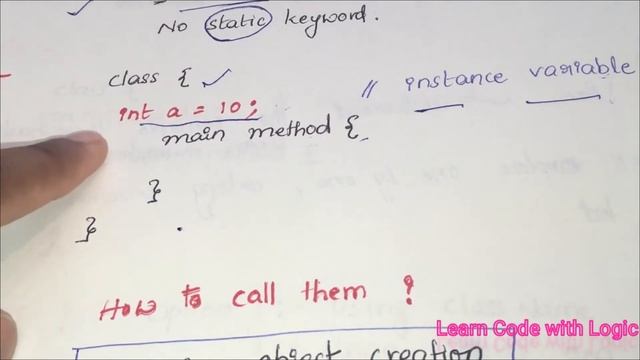 No static keyword.
class {
// instance variable
int a = 10;
main method {
}
}
How to call them ?
Learn Code with Logic
object creation